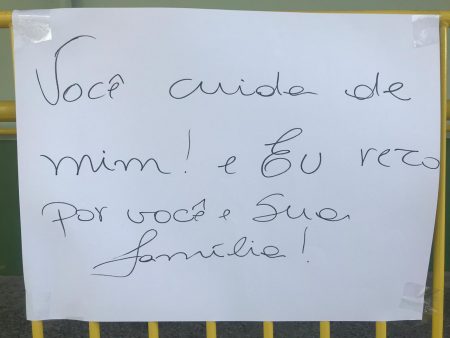 Você cuida de
mim! e Eu rezo
por você e Sua
família!